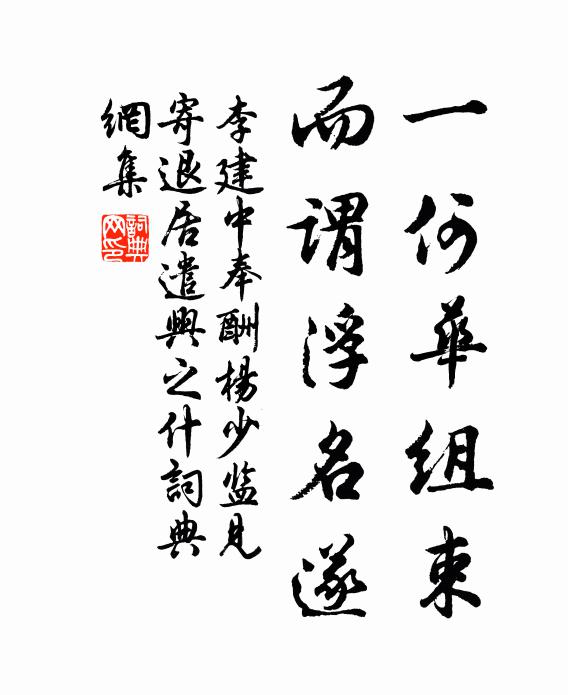 一何華組束
而謂浮名遂
李建中奉酬楊少监見
寄退居遣興之什詞典
網集
詞典
网印